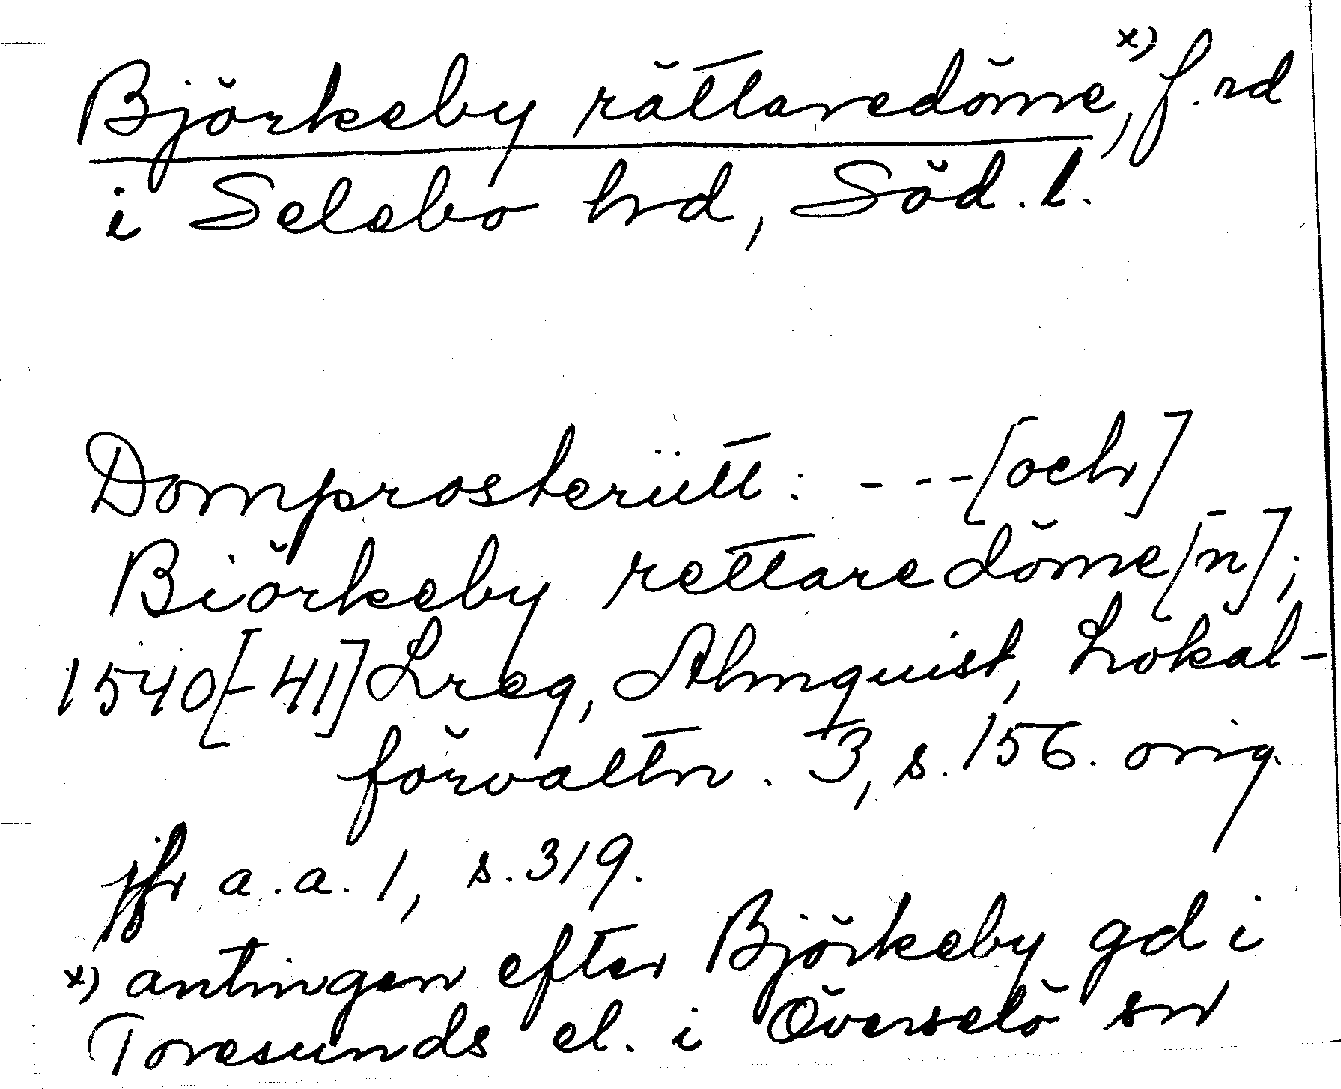 Björkeby rättaredöme,x) f.rd
i Selebo hrd, Söd. l.
Domprosterütt: ---[och]
Biörkeby rettaredöme[n];
1540[-41] Lreg, Almquist, Lokal-
förvaltn. 3, s. 156. orig.
jfr a.a. 1, s. 319.
x) antingen efter Björkeby gd i
Toresunds el. i Överselö sn